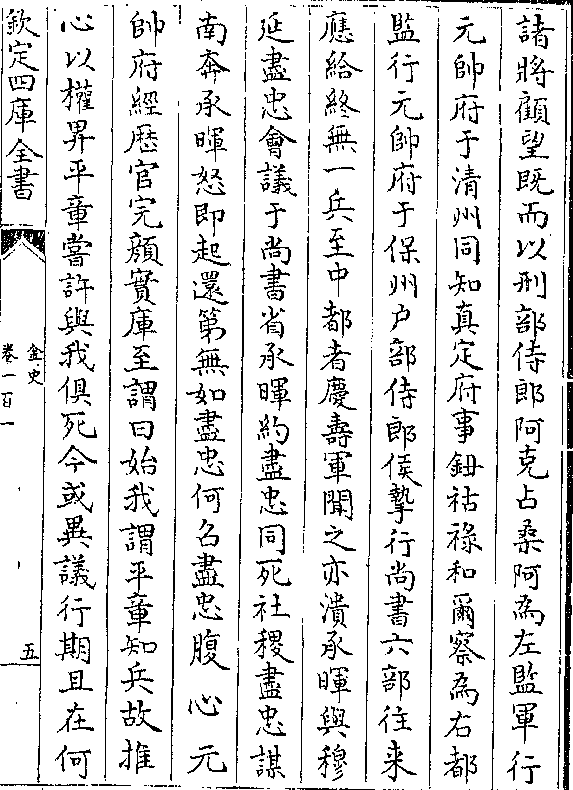 諸將顧望既而以刑部侍郎阿克占桑阿為左監軍行
元帥府于清州同知真定府事鈕祜祿和爾察為右都
監行元帥府于保州户部侍郎侯摯行尚書六部往来
應給終無一兵至中都者慶壽軍聞之亦潰承暉與穆
延盡忠會議于尚書省承暉約盡忠同死社稷盡忠謀
南奔承暉怒即起還第無如盡忠何召盡忠腹心元
帥府經歷官完顔實庫至謂曰始我謂平章知兵故推
心以權畀平章嘗許與我俱死今或異議行期且在何
欽定四庫全書
金史
卷一百一
五